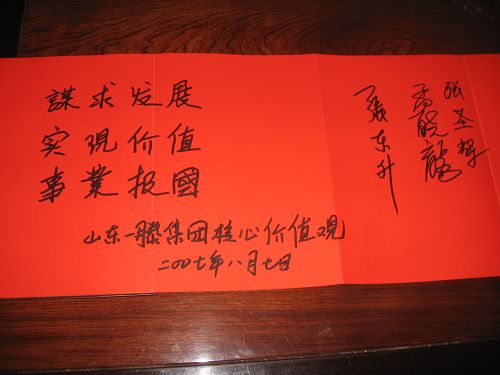 謀求发展
实現价值
事業报國
山东一滕集团核心价值观
二〇〇七年八月七日
张圣辉
孟晓龍
东升